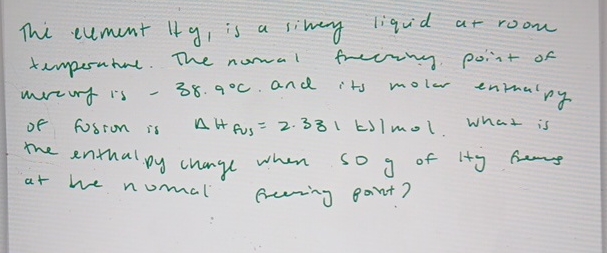 The element Hg, is a silvery liquid at room
temperature. The normal freezing point of
mercury is - 38.9°C. and its molar enthalpy
of fusion is ΔH fus = 2.331 kJ/mol. What is
the enthalpy change when 50 g of Hg freeze
at the normal freezing point?